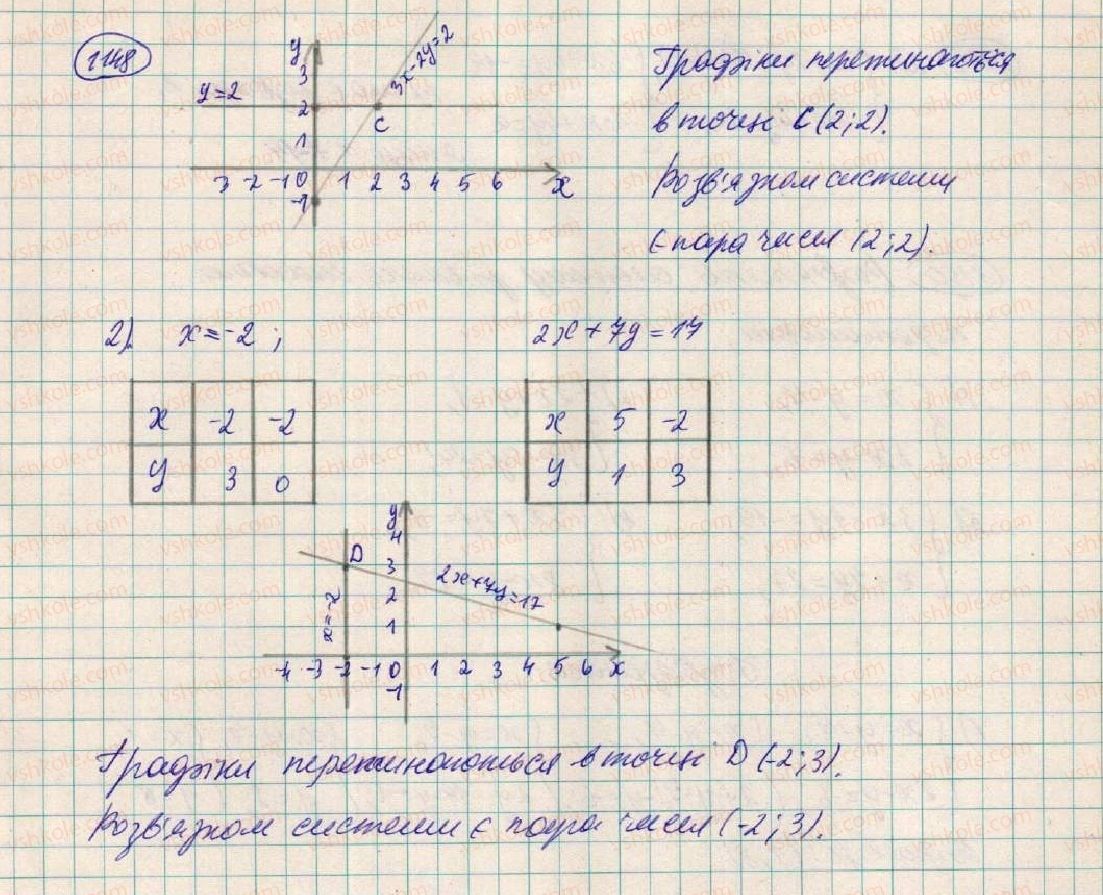 1148
y
3
2
1
-3 -2 -1 0 1 2 3 4 5 6 x
-1
y=2
3x-2y=2
C
Графіки перетинаються
в точці C(2;2).
Розв'язком системи
є пара чисел (2;2).
2) x=-2; 2x+7y=17
x -2 -2
y 3 0
x 5 -2
y 1 3
y
4
3
2
1
-4 -3 -2 -1 0 1 2 3 4 5 6 x
-1
D
x=-2
2x+7y=17
Графіки перетинаються в точці D(-2;3).
Розв'язком системи є пара чисел (-2;3).